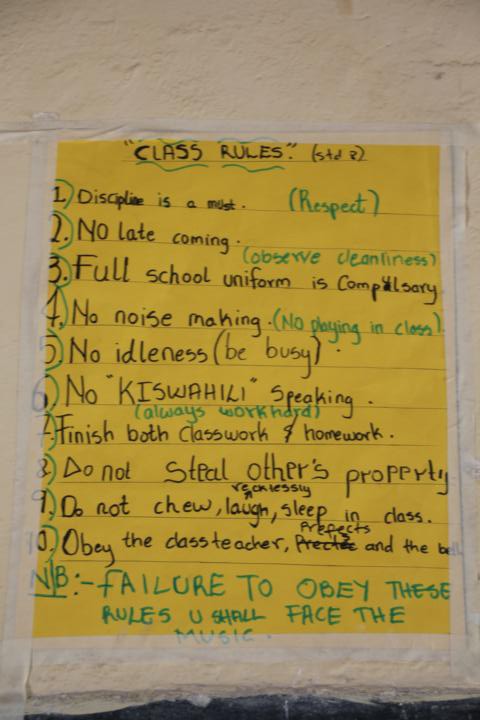 "CLASS RULES." (std 8)
1) Discipline is a must. (Respect)
2. No late coming.
(observe cleanliness)
3. Full school uniform is Compulsary
4. No noise making. (No playing in class)
5) No idleness (be busy).
6) No "KISWAHILI" Speaking.
(always work hard)
7. Finish both classwork & homework.
8. Do not Steal other's property
recklessly
9. Do not chew, laugh, sleep in class.
Prefects
10. Obey the classteacher, and the bell
N/B:- FAILURE TO OBEY THESE
RULES U SHALL FACE THE
MUSIC.